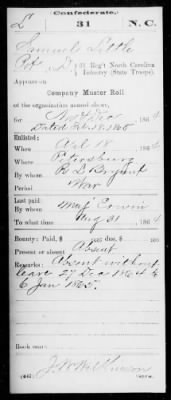 Confederate.
L 31 N. C.
Samuel Little
Pvt, Co. , 31 Reg't North Carolina
Infantry (State Troops).
Appears on
Company Muster Roll
of the organization named above,
for Nov & Dec, 1864
Dated Feb 28, 1865
Enlisted:
When Oct 18, 186
Where Petersburg
By whom Bryant
Period War
Last paid:
By whom Maj Erwin
To what time Aug 31, 1864
Bounty: Paid, $ Due, $
Present or absent Absent
Remarks: Absent without
leave 27 Dec 1864 to
6 Jan' 1865.
Book mark:
(642) Copyist.